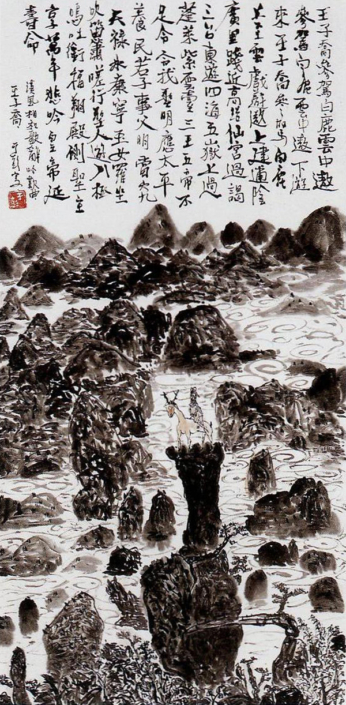 王子喬參駕白鹿雲中遨
參駕白鹿雲中遨下遊
來王子喬參駕白鹿
上至雲戲遊遨上建逋陰
廣里踐近高結仙宮過謁
三台東遊四海五嶽上過
蓬萊紫雲臺三王五帝不
足令令我聖明應太平
養民若子事父明當究
天祿永康寧玉女羅坐
吹笛簫嗟行聖人遊八極
鳴吐銜福翔殿側聖主
享萬年悲吟皇帝延
壽命
相和歌辭吟歎曲
王子喬